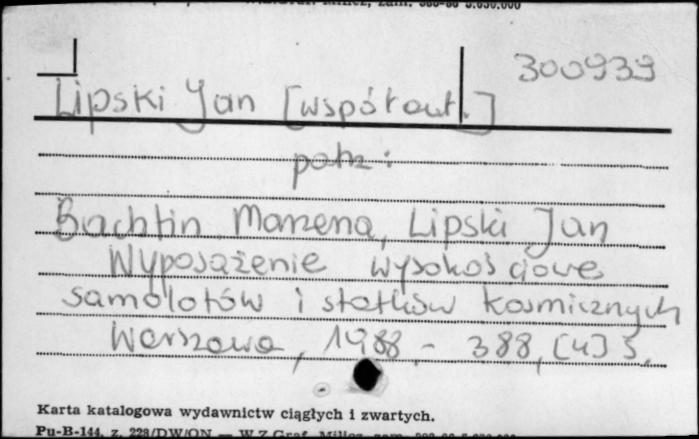 300939
Lipski Jan [współaut.]
patrz:
Bachtin Marzena, Lipski Jan
Wyposażenie wysokościowe
samolotów i statków kosmicznych
Warszawa, 1988. - 388, [4] s.
Karta katalogowa wydawnictw ciągłych i zwartych.
Pu-B-144, z. 228/DW/ON — W.Z.Graf. Milicz, zam.